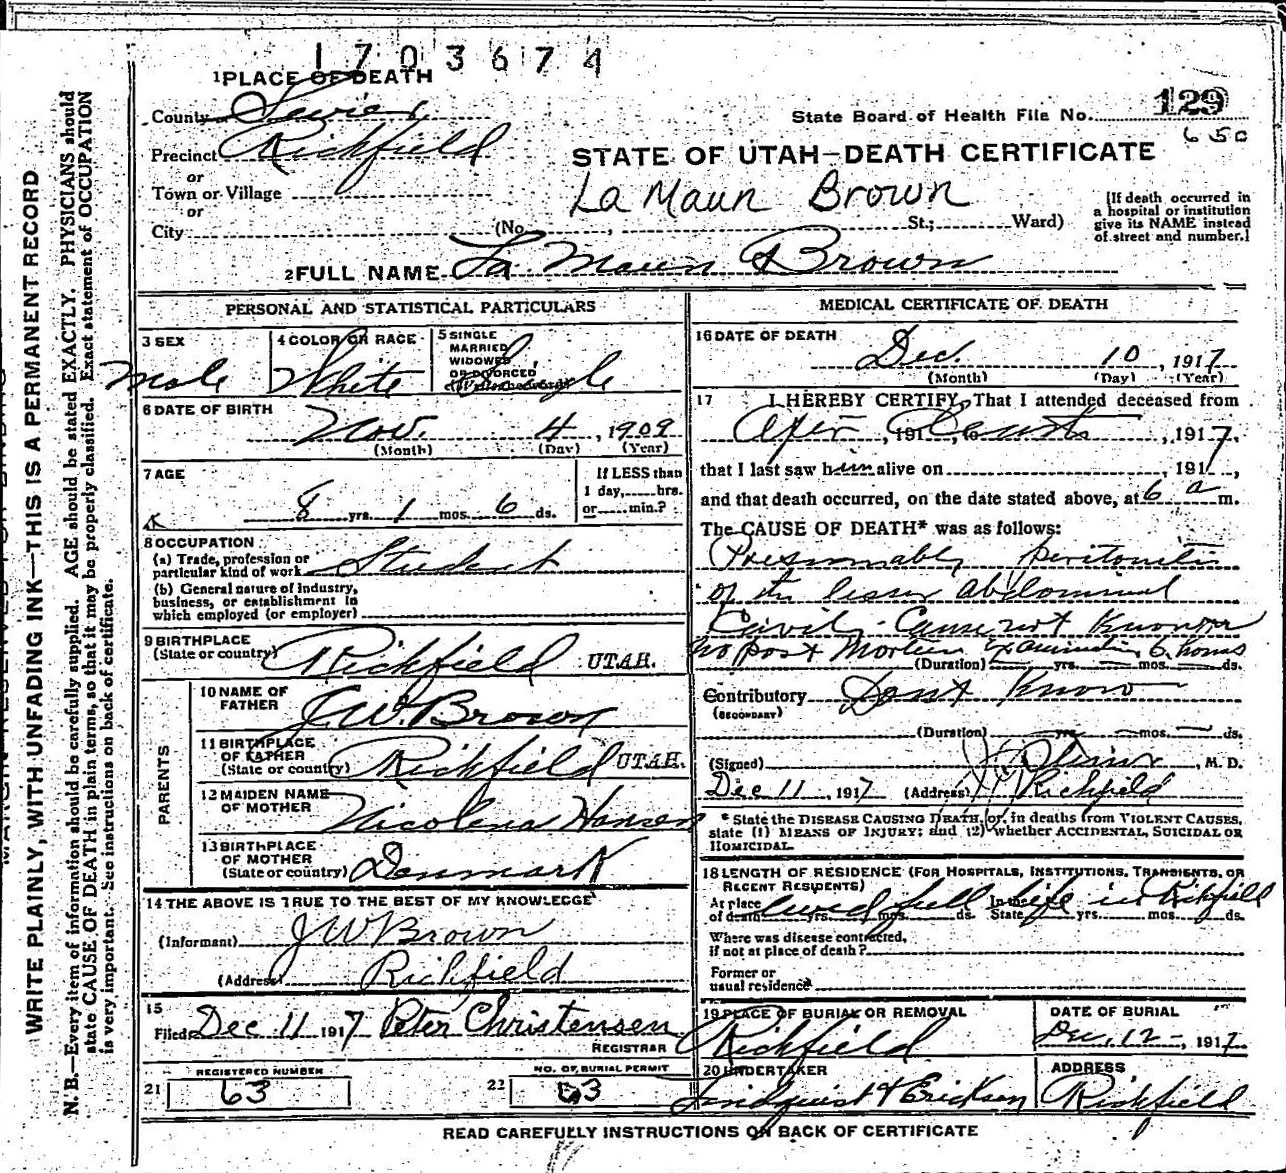 1703674
1 PLACE OF DEATH
County Sevier
State Board of Health File No. 129
650
Precinct Richfield
or
STATE OF UTAH—DEATH CERTIFICATE
Town or Village
or
La Maun Brown
City (No. , St.; Ward)
(If death occurred in
a hospital or institution
give its NAME instead
of street and number.)
2 FULL NAME La Maun Brown
PERSONAL AND STATISTICAL PARTICULARS
3 SEX
Male
4 COLOR OR RACE
White
5 SINGLE
MARRIED
WIDOWED
OR DIVORCED
Single
6 DATE OF BIRTH
Nov. 4, 1909
(Month) (Day) (Year)
7 AGE
8 yrs. 1 mos. 6 ds.
If LESS than
1 day, hrs.
or min.?
8 OCCUPATION
(a) Trade, profession or
particular kind of work Student
(b) General nature of industry,
business, or establishment in
which employed (or employer)
9 BIRTHPLACE
(State or country) Richfield UTAH.
PARENTS
10 NAME OF
FATHER J.W. Brown
11 BIRTHPLACE
OF FATHER
(State or country) Richfield UTAH.
12 MAIDEN NAME
OF MOTHER Nicolena Hansen
13 BIRTHPLACE
OF MOTHER
(State or country) Denmark
14 THE ABOVE IS TRUE TO THE BEST OF MY KNOWLEDGE
(Informant) J W Brown
(Address) Richfield
15
Filed Dec 11 1917 Peter Christensen
REGISTRAR
21 REGISTERED NUMBER
63
22 NO. OF BURIAL PERMIT
63
MEDICAL CERTIFICATE OF DEATH
16 DATE OF DEATH
Dec. 10, 1917
(Month) (Day) (Year)
17 I HEREBY CERTIFY, That I attended deceased from
After Death, 191, to , 1917,
that I last saw him alive on , 1917,
and that death occurred, on the date stated above, at 6 a m.
The CAUSE OF DEATH* was as follows:
Presumably peritonitis
of the lesser abdominal
Cavity. Cause not Known
no post Mortem Examination 6 hours
(Duration) yrs. mos. ds.
Contributory Dont Know
(SECONDARY)
(Duration) yrs. mos. ds.
(Signed) , M. D.
Dec 11, 1917 (Address) Richfield
* State the DISEASE CAUSING DEATH, or, in deaths from VIOLENT CAUSES,
state (1) MEANS OF INJURY; and (2) whether ACCIDENTAL, SUICIDAL OR
HOMICIDAL.
18 LENGTH OF RESIDENCE (FOR HOSPITALS, INSTITUTIONS, TRANSIENTS, OR
RECENT RESIDENTS)
At place
of death lived full yrs. mos. ds. In the State life in Richfield yrs. mos. ds.
Where was disease contracted,
if not at place of death?
Former or
usual residence
19 PLACE OF BURIAL OR REMOVAL
Richfield
DATE OF BURIAL
Dec. 12, 1917
20 UNDERTAKER
Lindquist & Erickson
ADDRESS
Richfield
READ CAREFULLY INSTRUCTIONS ON BACK OF CERTIFICATE
MARGIN RESERVED FOR BINDING
WRITE PLAINLY, WITH UNFADING INK—THIS IS A PERMANENT RECORD
N. B.—Every item of information should be carefully supplied. AGE should be stated EXACTLY. PHYSICIANS should
state CAUSE OF DEATH in plain terms, so that it may be properly classified. Exact statement of OCCUPATION
is very important. See instructions on back of certificate.